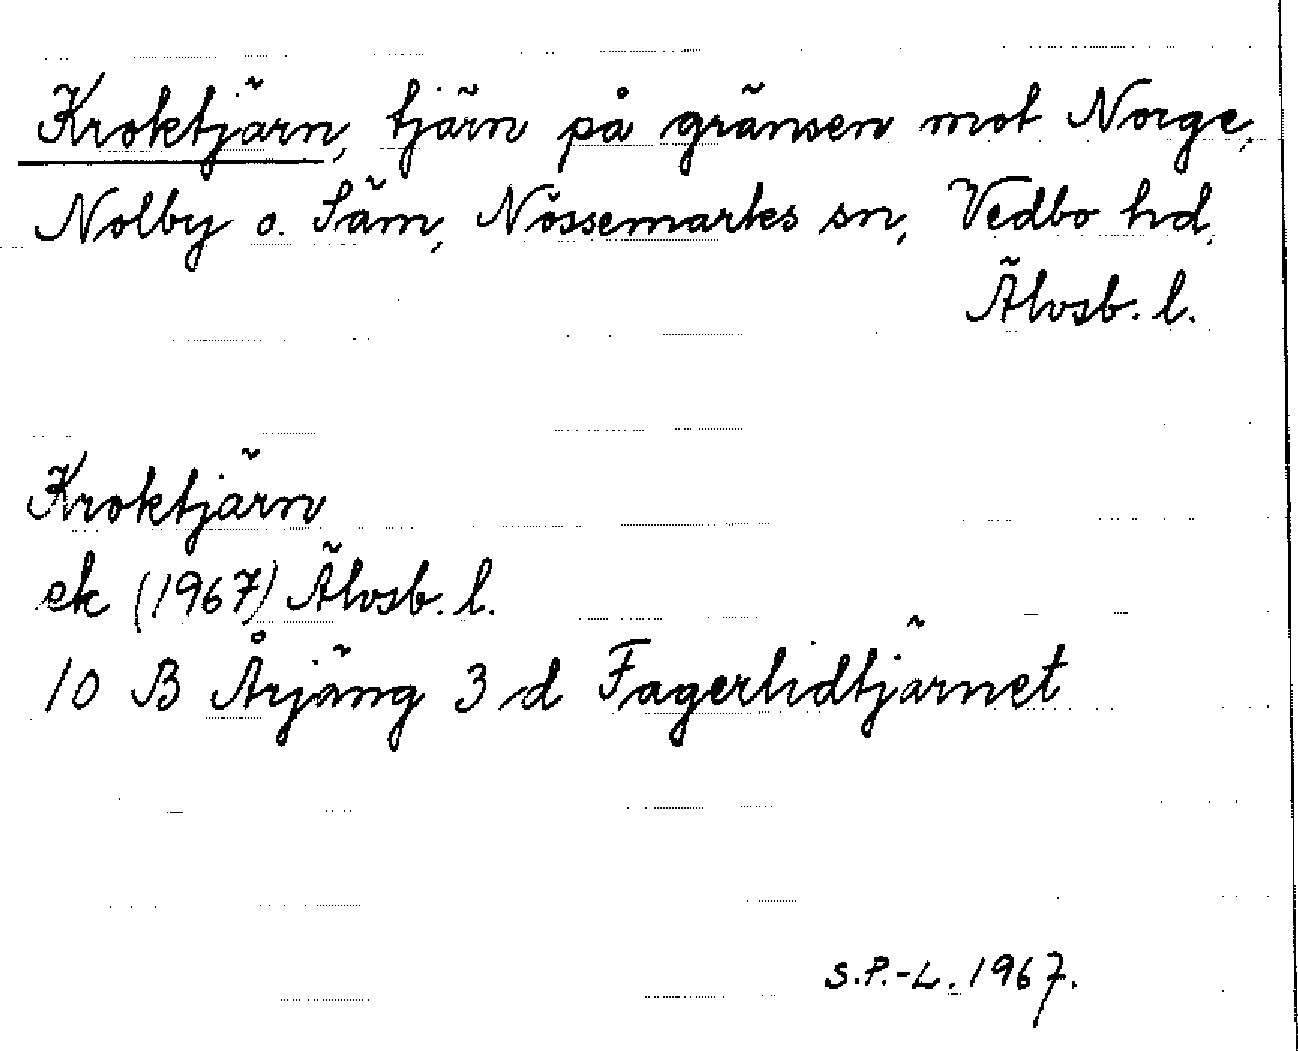 Kroktjärn, tjärn på gränsen mot Norge,
Nolby o. Säm, Nössemarks sn, Vedbo hd,
Älvsb. l.
Kroktjärn
ek (1967) Älvsb. l.
10 B Årjäng 3 d Fagerlidtjärnet
S.P.-L. 1967.